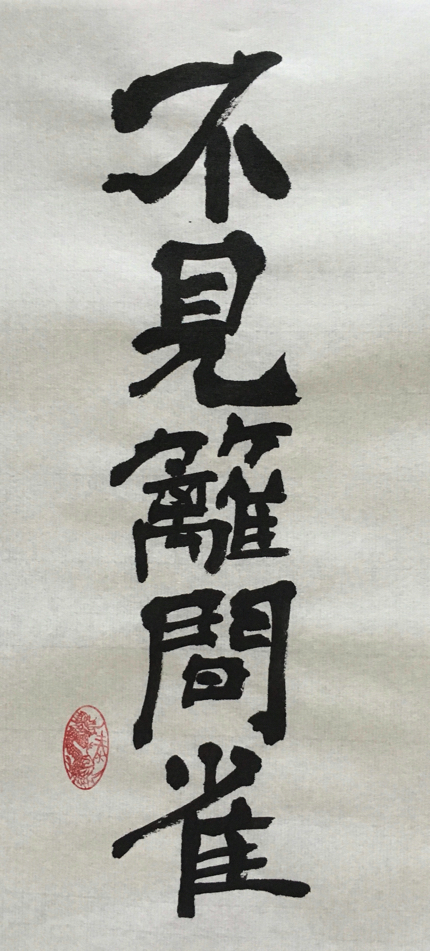 不見籬間雀